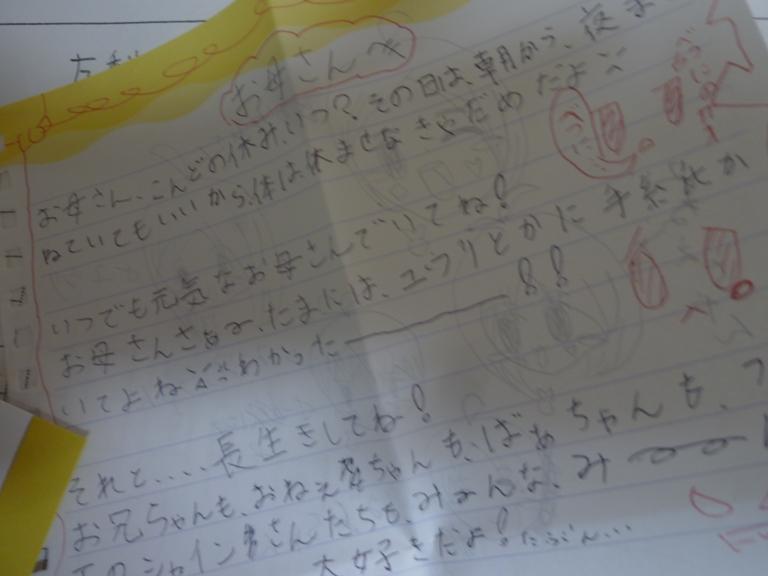 お母さんへ
お母さん、こんどの休み、いつ？その日は、朝から、夜ま
ねていてもいいから、体は休まさなきゃだめだよ
いつでも元気なお母さんでいてね!
お母さんさぁ〜、たまには、ユウリとかに手紙か
いてよね わかった――!!
それと....長生きしてね!
お兄ちゃんも、おねえちゃんも、ばぁちゃんも、
のシャインさんたちも、み〜んな、み
大好きだよ!たぶん...